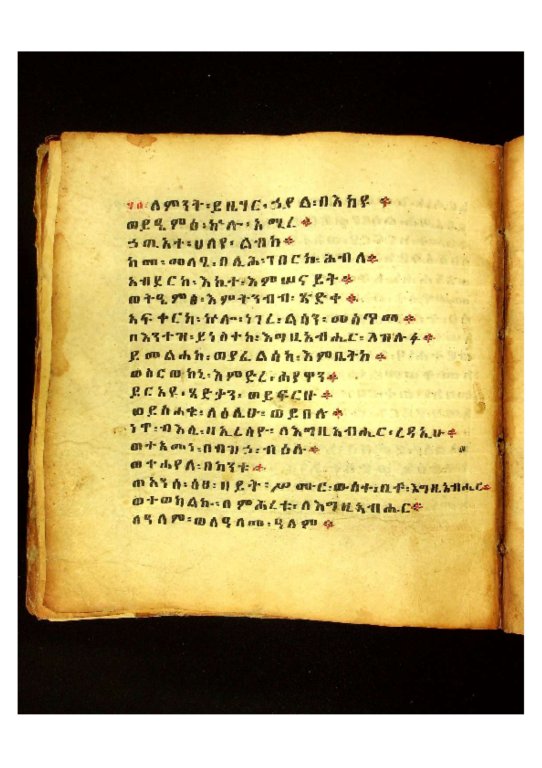 ፶፩፡ለምንት፡ይዜሃር፡ኃያል፡በእከዩ ፨
ወይዔምፅ፡ኵሎ፡አሚረ ፨
ኃጢአተ፡ሀለየ፡ልብከ ፨
ከመ፡መላፂ፡በሊሕ፡ገበርከ፡ሕብለ ፨
አብደርከ፡እኪተ፡እምሠናይት ፨
ወትዔምፅ፡እምትንብብ፡ጽድቀ ፨
አፍቀርከ፡ኵሎ፡ነገረ፡ልሳን፡መስጥመ ፨
በእንተዝ፡ይነስተከ፡እግዚአብሔር፡ለዝሉፉ ፨
ይመልሐከ፡ወያፈልሰከ፡እምቤትከ ፨
ወስርወከኒ፡እምድረ፡ሕያዋን ፨
ይርአዩ፡ጻድቃን፡ወይፍርሁ ፨
ወይስሐቁ፡ላዕሌሁ፡ወይበሉ ፨
ነዋ፡ብእሲ፡ዘኢረሰዮ፡ለእግዚአብሔር፡ረዳኢሁ ፨
ወተአመነ፡በብዝኃ፡ብዕሉ ፨
ወተሐየለ፡በከንቱ ፨
ወአንሰ፡ዕፀ፡ዘይት፡ሥሙር፡ውስተ፡ቤቱ፡እግዚአብሔር ፨
ወተወከልኩ፡በምሕረቱ፡ለእግዚአብሔር ፨
ለዓለም፡ወለዓለመ፡ዓለም ፨